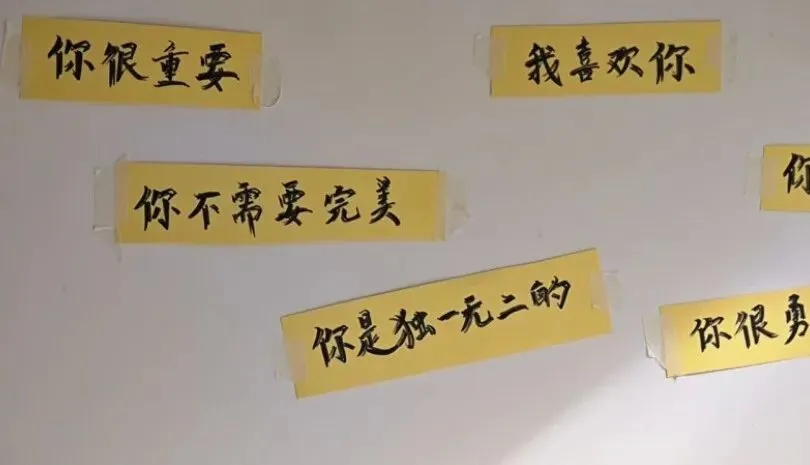 你很重要
我喜欢你
你不需要完美
你
你是独一无二的
你很勇